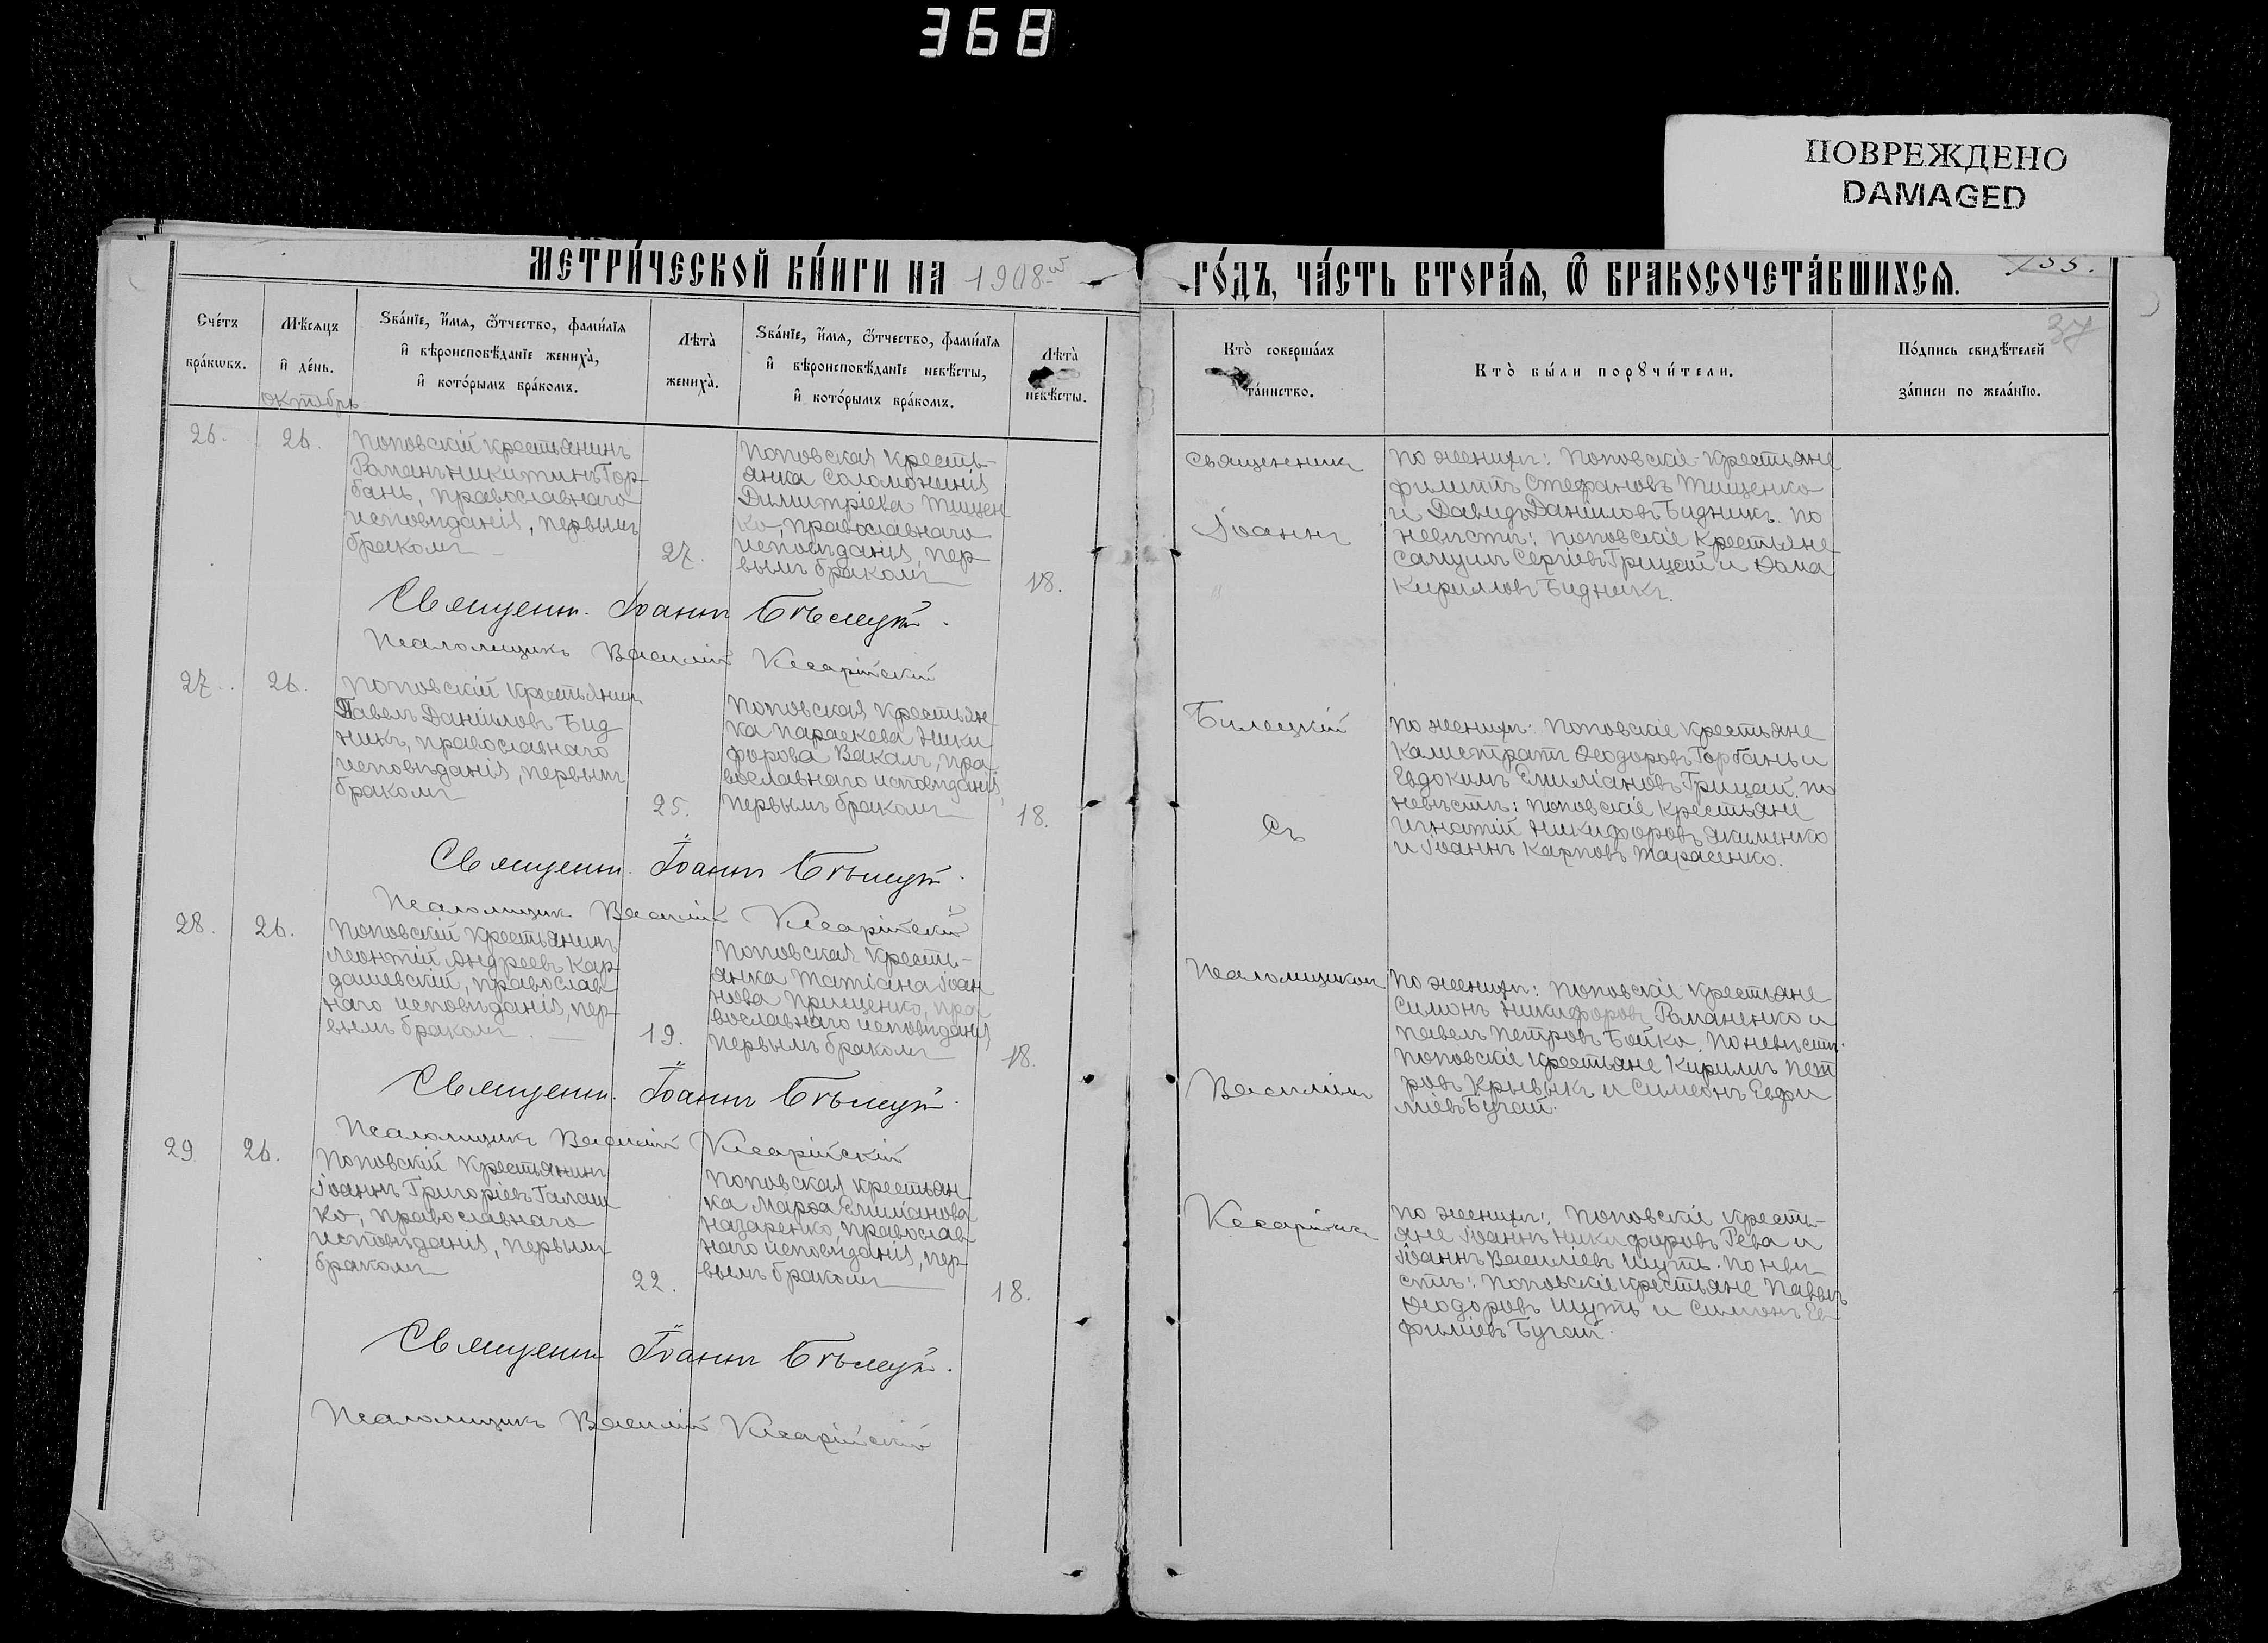 368
ПОВРЕЖДЕНО
DAMAGED
МЕТРИ́ЧЕСКОЙ КНИ́ГИ НА 1908 й
ГО́ДЪ, ЧА́СТЬ ВТОРА́Я, Ѿ БРАКОСОЧЕТА́ВШИХСЯ.
37
Сче́тъ
бра́кωвъ.
Мѣ́сяцъ
и҆ де́нь.
октябрь
Ѕва́нїе, и҆́мя, ѻ҆́тчество, фами́лїя
и҆ вѣроисповѣ́данїе жениха̀,
и҆ кото́рымъ бра́комъ.
Лѣ́та
жениха̀.
Ѕва́нїе, и҆́мя, ѻ҆́тчество, фами́лїя
и҆ вѣроисповѣ́данїе невѣ́сты,
и҆ кото́рымъ бра́комъ.
Лѣ́та
невѣ́сты.
Кто̀ соверша́лъ
та́инство.
Кто̀ бы́ли порꙋчи́тели.
По́дпись свидѣ́телей
за́писи по жела́нїю.
26.
26.
Поповскій крестьянинъ
Романъ Никитинъ Гор-
бань, православнаго
исповѣданія, первымъ
бракомъ
27.
Поповская кресть-
янка Соломонія
Димитріева Тищен
ко, православнаго
исповѣданія, пер-
вымъ бракомъ
18.
Священникъ
Іоаннъ
По женихѣ: Поповскіе крестьяне
Филиппъ Стефановъ Тищенко
и Давидъ Даніиловъ Бидникъ. По
невѣстѣ: Поповскіе крестьяне
Самуилъ Сергіевъ Грицай и Ѳома
Кирилловъ Бидникъ.
Священн. Іоаннъ
Псаломщикъ Василій Кесарійскій
27.
26.
Поповскій крестьянинъ
Павелъ Даніиловъ Бид
никъ, православнаго
исповѣданія, первымъ
бракомъ
25.
Поповская крестьян-
ка Параскева Ники
форова Вакалъ, пра
вославнаго исповѣданія,
первымъ бракомъ
18.
Билецкій
съ
По женихѣ: Поповскіе крестьяне
Калистратъ Ѳеодоровъ Горбань и
Евдокимъ Емиліановъ Грицай. По
невѣстѣ: Поповскіе крестьяне
Игнатій Никифоровъ Якименко
и Іоаннъ Карповъ Тарасенко.
Священн. Іоаннъ
Псаломщикъ Василій Кесарійскій
28.
26.
Поповскій крестьянинъ
Леонтій Андреевъ Кар-
дашевскій, православ
наго исповѣданія, пер-
вымъ бракомъ.
19.
Поповская кресть-
янка Татіана Іоан
нова Прищенко, пра
вославнаго исповѣданія
первымъ бракомъ
18.
Псаломщикомъ
Василіемъ
По женихѣ: Поповскіе крестьяне
Симонъ Никифоровъ Романенко и
Павелъ Петровъ Бойко. По невѣстѣ:
Поповскіе крестьяне Кириллъ Пет
ровъ и Симеонъ Евфи
міевъ Бугай.
Священн. Іоаннъ
Псаломщикъ Василій Кесарійскій
29
26.
Поповскій крестьянинъ
Іоаннъ Григоріевъ Галаш
ко, православнаго
исповѣданія, первымъ
бракомъ
22.
Поповская крестьян-
ка Марѳа Емиліанова
Назаренко, православ
наго исповѣданія, пер-
вымъ бракомъ
18.
По женихѣ: Поповскіе кресть-
яне Іоаннъ Никифоровъ Рева и
Іоаннъ Василіевъ Шуть. По невѣ
стѣ: Поповскіе крестьяне Павелъ
Ѳеодоровъ Шуть и Симонъ Ев
фиміевъ Бугай.
Священн. Іоаннъ
Псаломщикъ Василій Кесарійскій